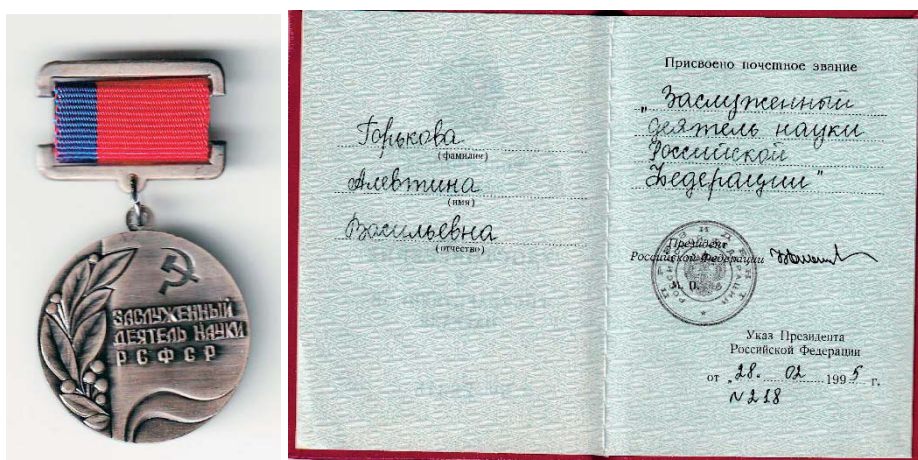 ЗАСЛУЖЕННЫЙ
ДЕЯТЕЛЬ НАУКИ
РСФСР
Горькова
(фамилия)
Алевтина
(имя)
Васильевна
(отчество)
Присвоено почетное звание
„Заслуженный
деятель науки
Российской
Федерации"
Президент
Российской Федерации
М. П.
Указ Президента
Российской Федерации
от „28. 02 1995 г.
N 218